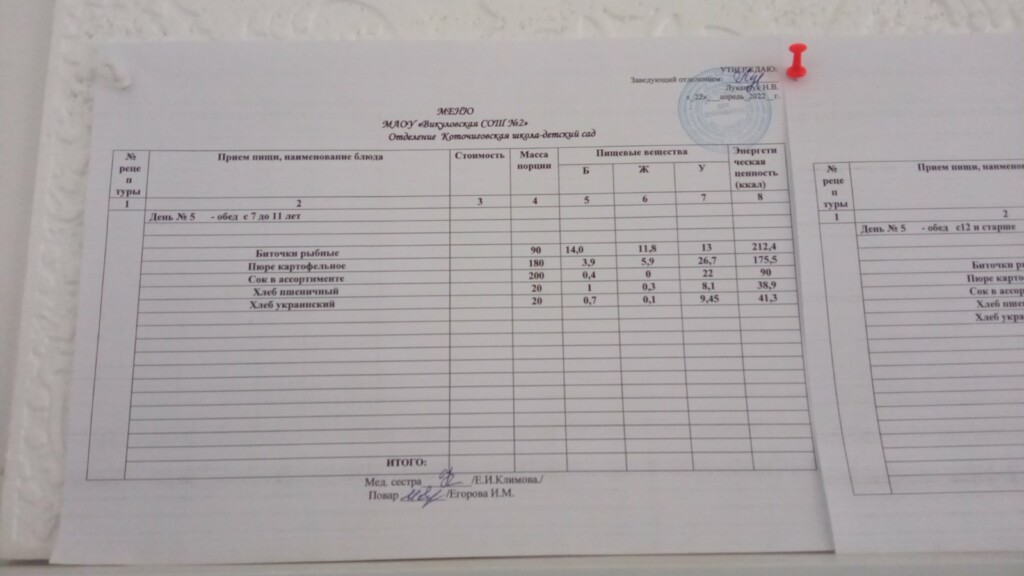 УТВЕРЖДАЮ:
Заведующий отделением
Н.В.
« 22» апрель 2022 г.
МЕНЮ
МАОУ «Викуловская СОШ №2»
Отделение Коточиговская школа-детский сад
№ рецептуры Прием пищи, наименование блюда Стоимость Масса порции Пищевые вещества Энергетическая ценность (ккал)
Б Ж У
1 2 3 4 5 6 7 8
День № 5 - обед с 7 до 11 лет
Биточки рыбные 90 14,0 11,8 13 212,4
Пюре картофельное 180 3,9 5,9 26,7 175,5
Сок в ассортименте 200 0,4 0 22 90
Хлеб пшеничный 20 1 0,3 8,1 38,9
Хлеб украинский 20 0,7 0,1 9,45 41,3
ИТОГО:
Мед. сестра /Е.И.Климова./
Повар /Егорова И.М.
№ рецептуры Прием пищи, наимено
1 2
День № 5 - обед с12 и старше
Биточки ры
Пюре карто
Сок в ассор
Хлеб пше
Хлеб укра